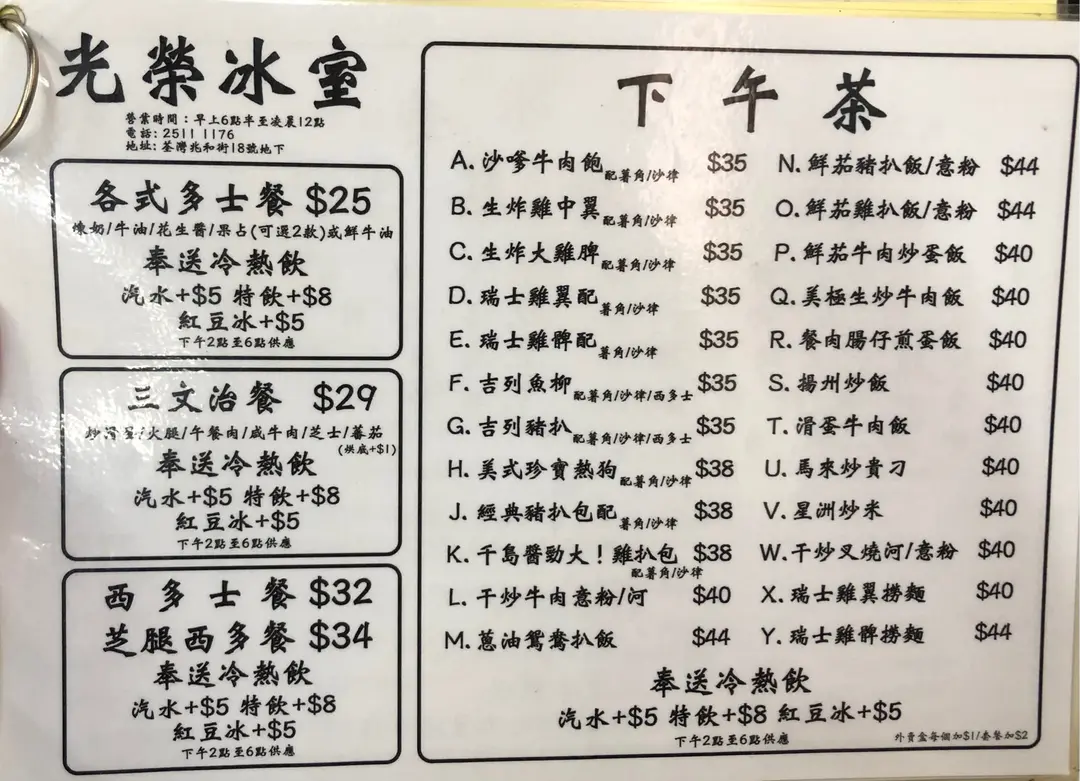 光榮冰室
營業時間：早上6點半至凌晨12點
電話: 2511 1176
地址: 荃灣兆和街18號地下
各式多士餐 $25
煉奶/牛油/花生醬/果占(可選2款)或鮮牛油
奉送冷熱飲
汽水+$5 特飲+$8
紅豆冰+$5
下午2點至6點供應
三文治餐 $29
炒滑蛋/火腿/午餐肉/咸牛肉/芝士/蕃茄
(烘底+$1)
奉送冷熱飲
汽水+$5 特飲+$8
紅豆冰+$5
下午2點至6點供應
西多士餐 $32
芝腿西多餐 $34
奉送冷熱飲
汽水+$5 特飲+$8
紅豆冰+$5
下午2點至6點供應
下午茶
A. 沙嗲牛肉飽配薯角/沙律 $35
B. 生炸雞中翼配薯角/沙律 $35
C. 生炸大雞脾配薯角/沙律 $35
D. 瑞士雞翼配薯角/沙律 $35
E. 瑞士雞髀配薯角/沙律 $35
F. 吉列魚柳配薯角/沙律/西多士 $35
G. 吉列豬扒配薯角/沙律/西多士 $35
H. 美式珍寶熱狗配薯角/沙律 $38
J. 經典豬扒包配薯角/沙律 $38
K. 千島醬勁大！雞扒包 $38
配薯角/沙律
L. 干炒牛肉意粉/河 $40
M. 蔥油鴛鴦扒飯 $44
N. 鮮茄豬扒飯/意粉 $44
O. 鮮茄雞扒飯/意粉 $44
P. 鮮茄牛肉炒蛋飯 $40
Q. 美極生炒牛肉飯 $40
R. 餐肉腸仔煎蛋飯 $40
S. 揚州炒飯 $40
T. 滑蛋牛肉飯 $40
U. 馬來炒貴刁 $40
V. 星洲炒米 $40
W. 干炒叉燒河/意粉 $40
X. 瑞士雞翼撈麵 $40
Y. 瑞士雞髀撈麵 $44
奉送冷熱飲
汽水+$5 特飲+$8 紅豆冰+$5
下午2點至6點供應
外賣盒每個加$1/套餐加$2